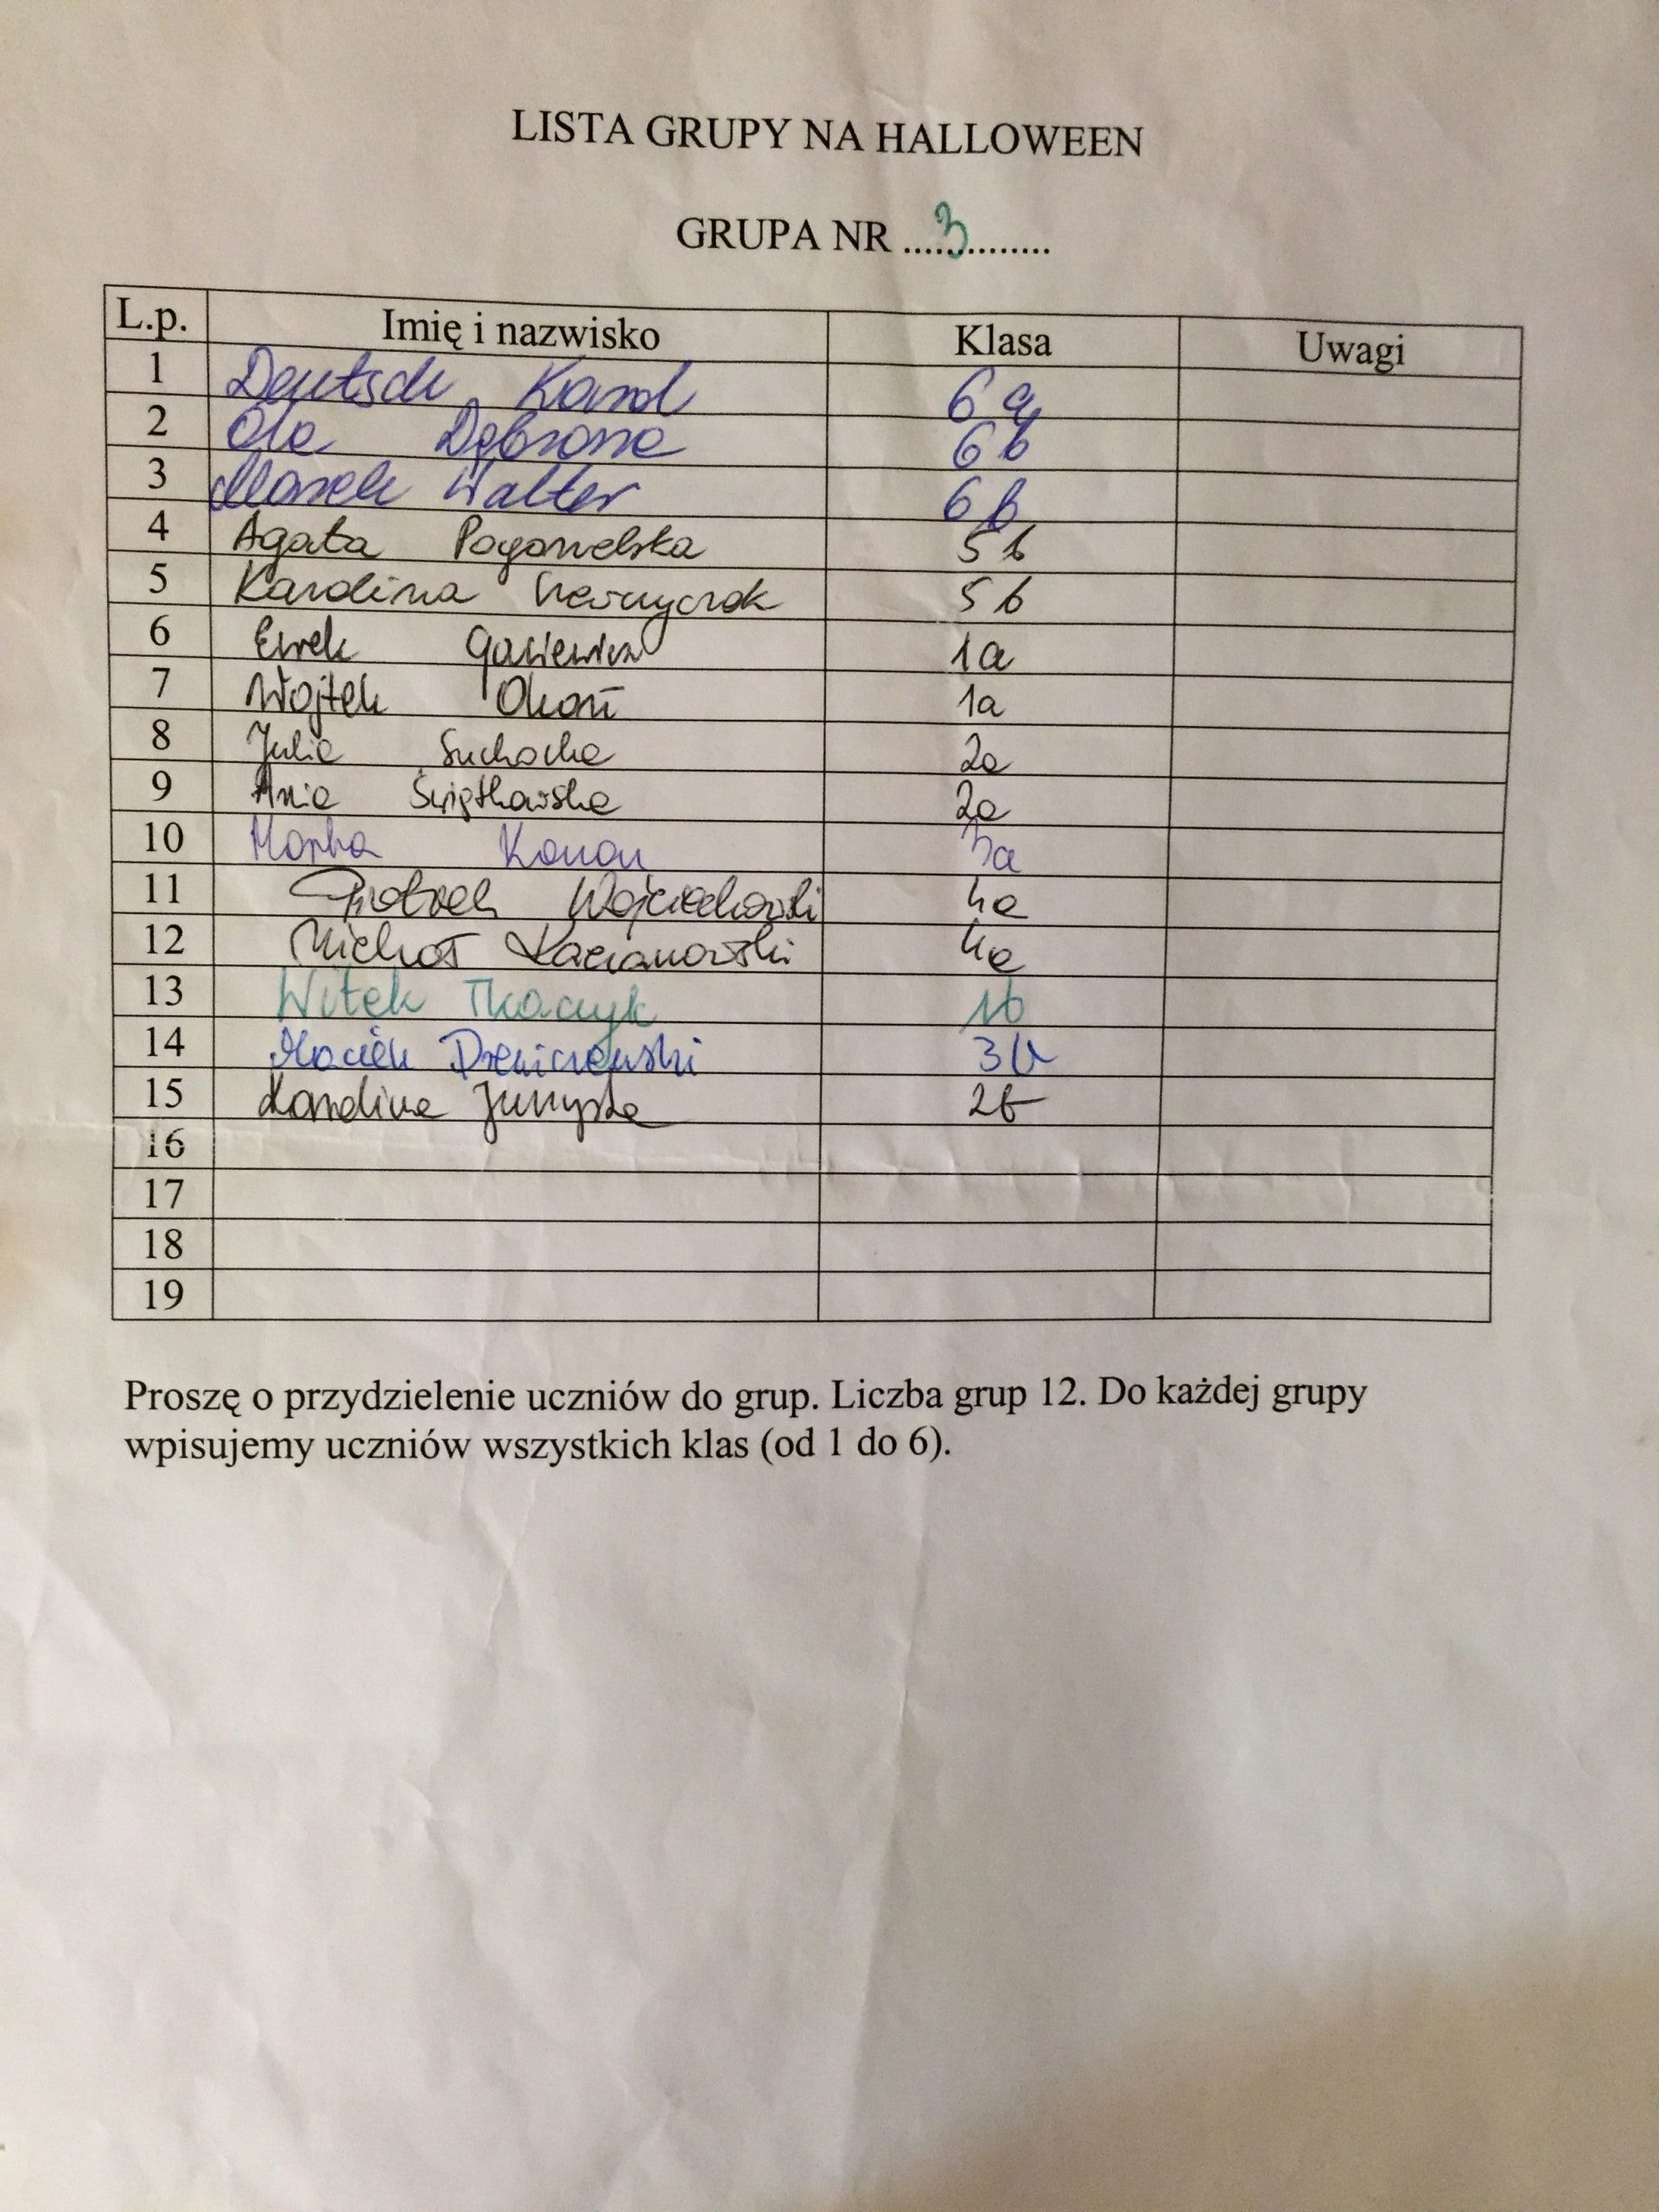 LISTA GRUPY NA HALLOWEEN
GRUPA NR ....3..............
L.p. Imię i nazwisko Klasa Uwagi
1 Deutsch Karol 6a
2 Ola Dąbrowa 6b
3 Marek Walter 6b
4 Agata Pogorzelska 5b
5 Karolina 5b
6 1a
7 Wojtek Okoń 1a
8 Julia Suchocka 2a
9 Ania Świątkowska 2a
10 Marta Konon 3a
11 Piotrek Wojciechowski 4a
12 Michał Kacianowski 4a
13 Witek Tkaczyk 1b
14 Maciek 3b
15 Karolina 2b
16
17
18
19
Proszę o przydzielenie uczniów do grup. Liczba grup 12. Do każdej grupy
wpisujemy uczniów wszystkich klas (od 1 do 6).